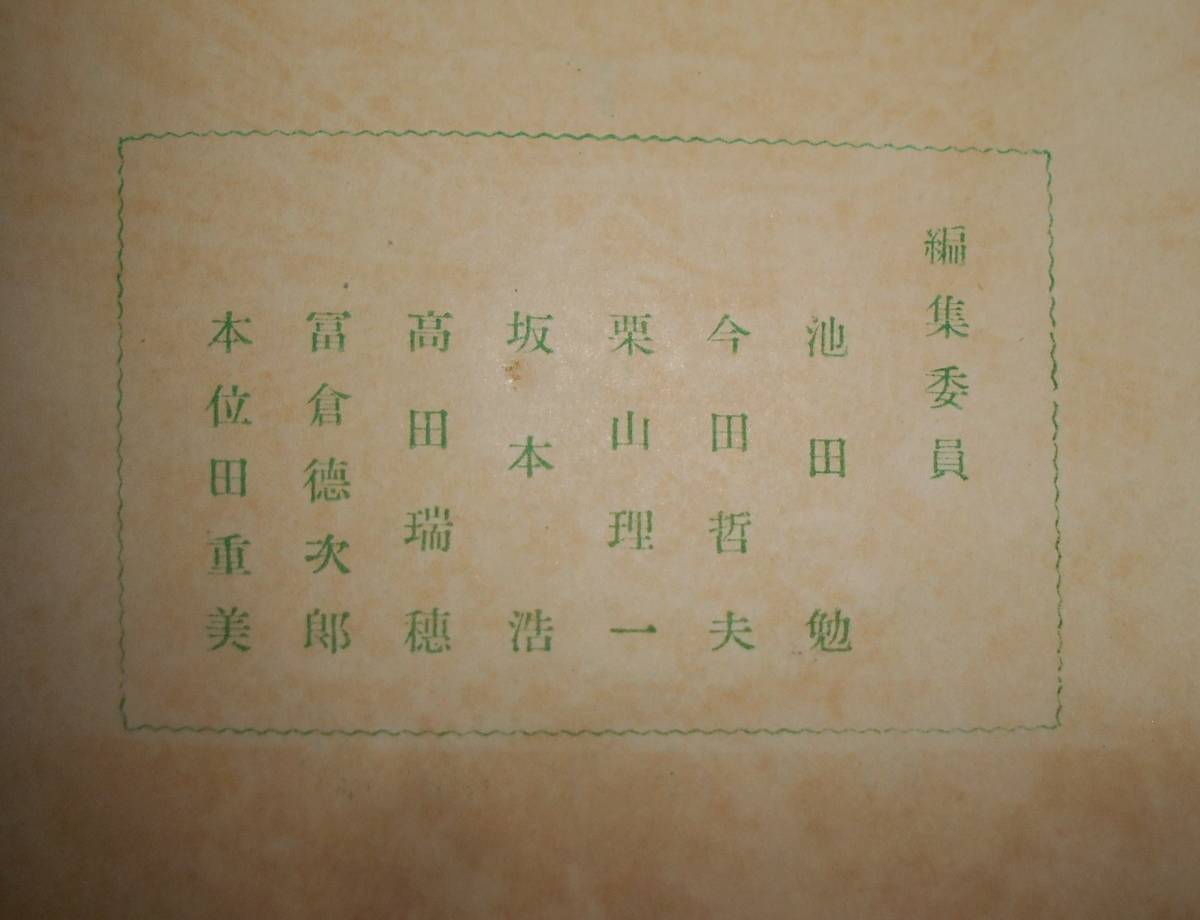 編集委員
池田勉
今田哲夫
栗山理一
坂本浩
高田瑞穂
冨倉徳次郎
本位田重美